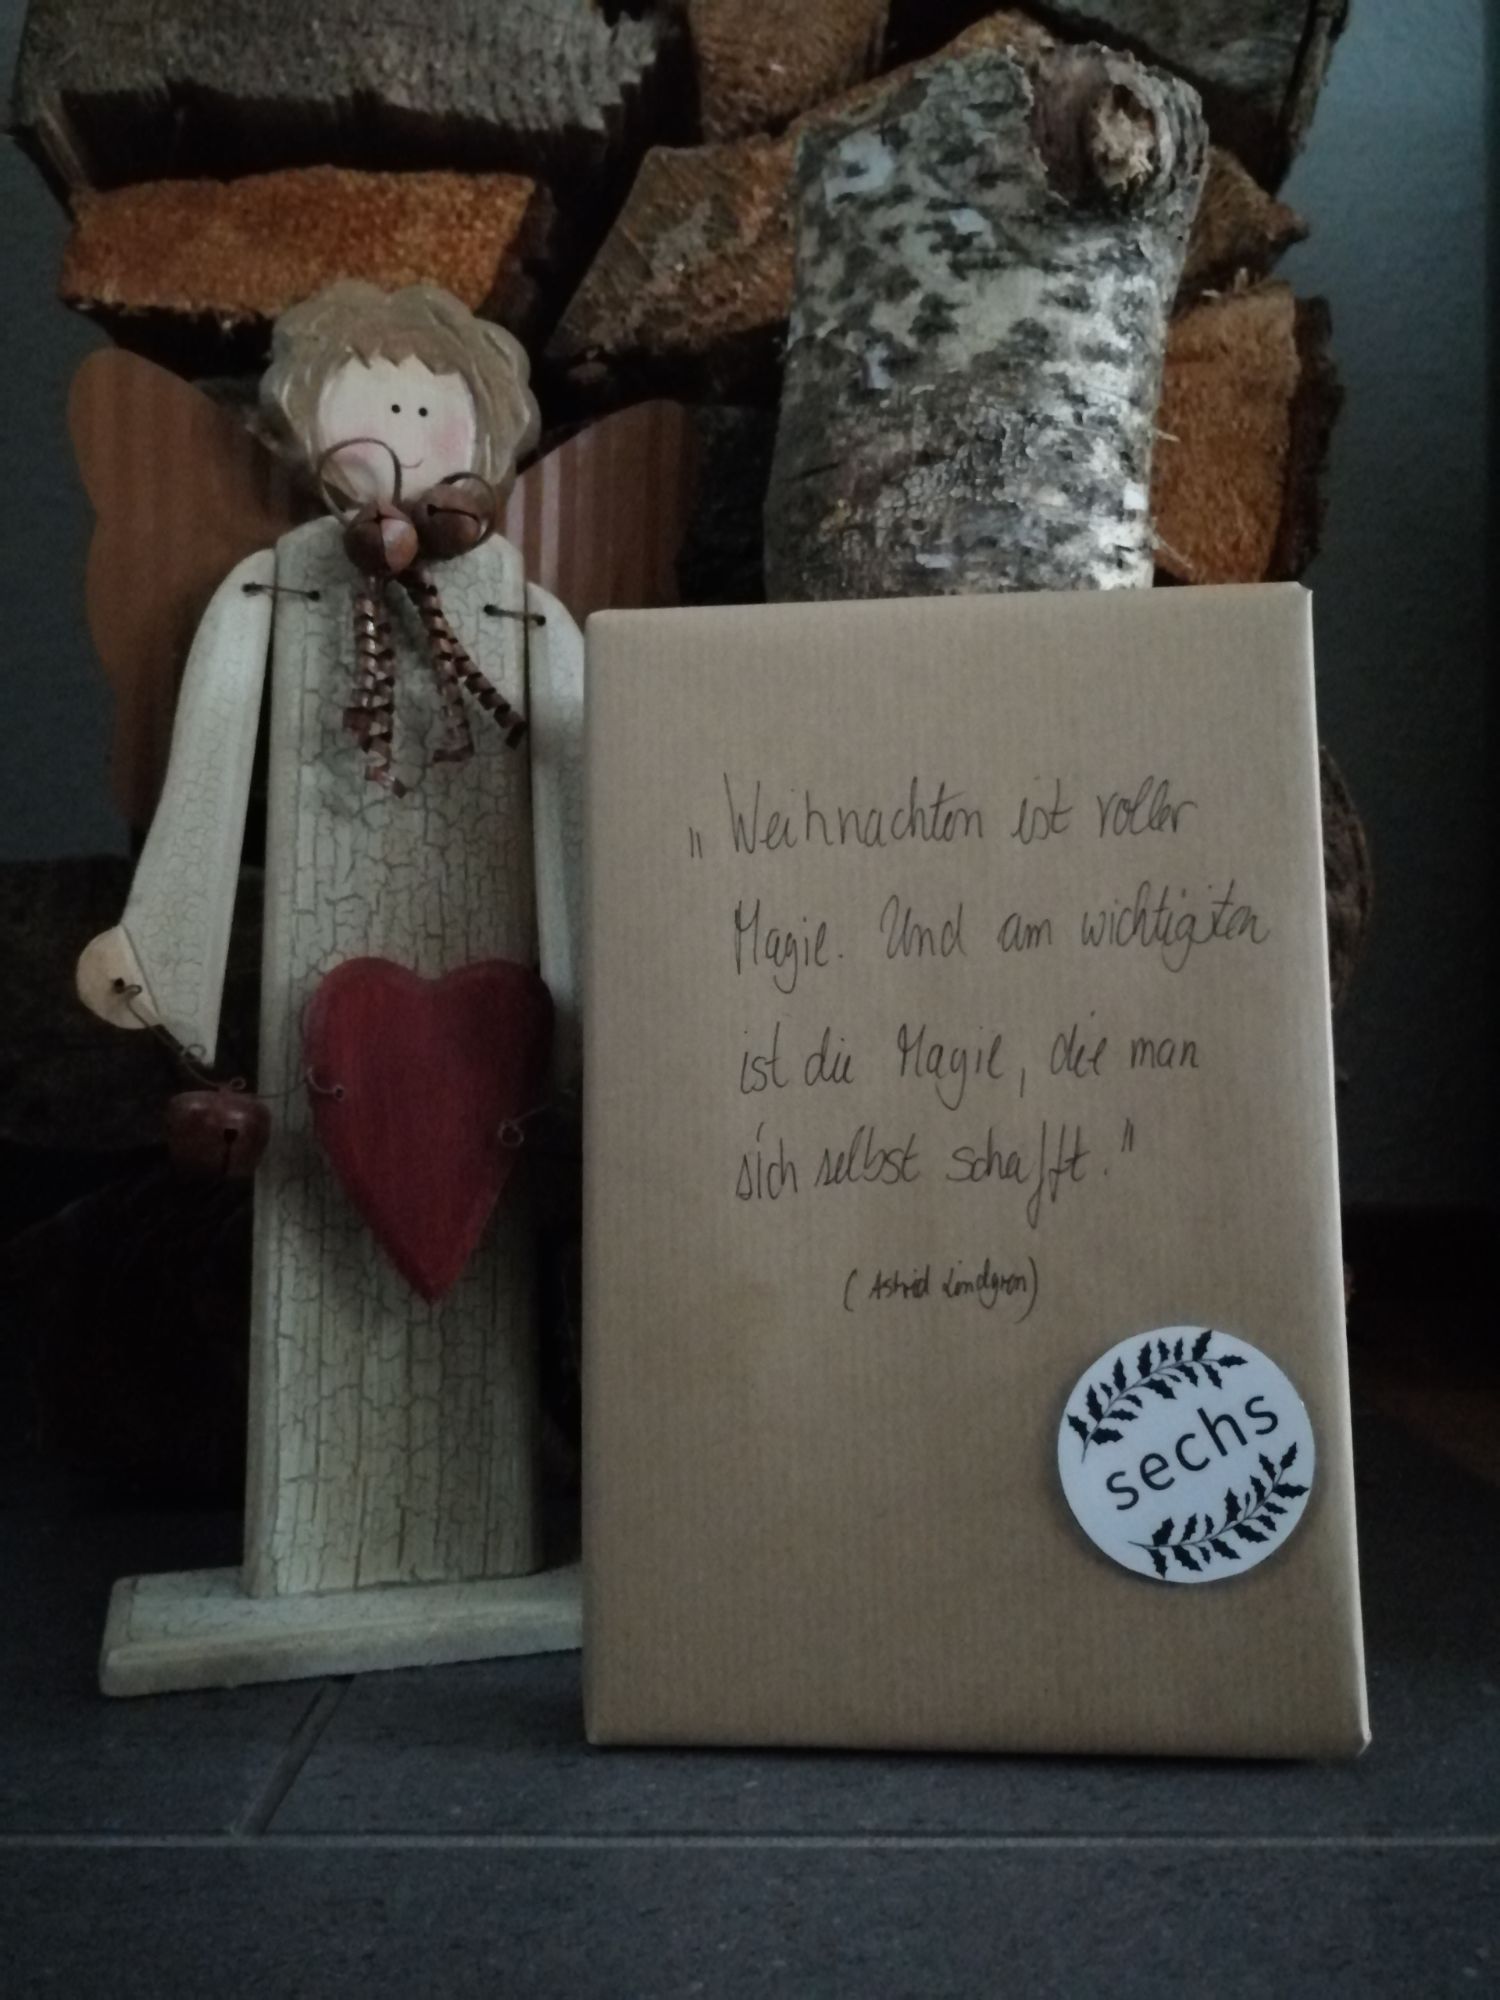 „Weihnachten ist voller
Magie. Und am wichtigsten
ist die Magie, die man
sich selbst schafft."
(Astrid Lindgren)
sechs